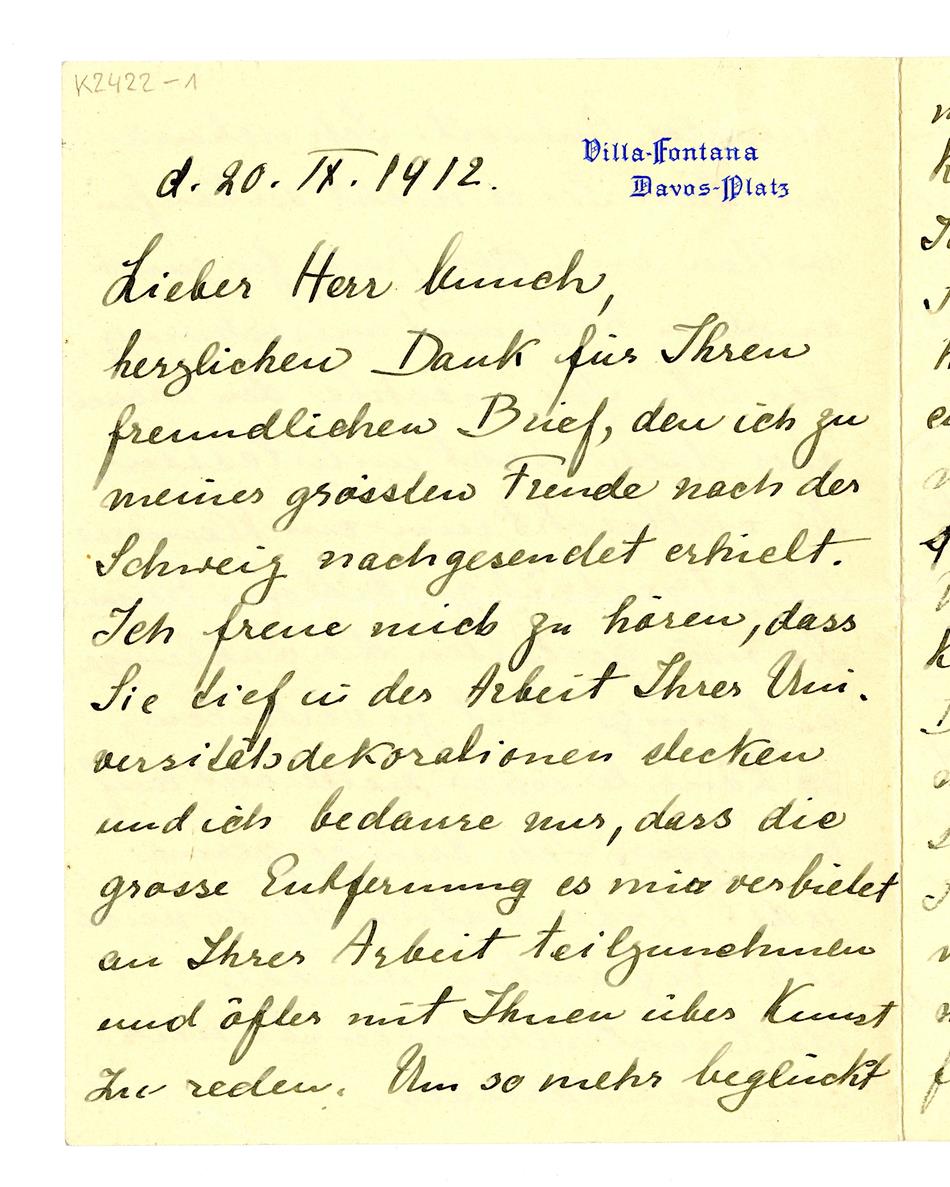 K2422-1
d. 20. IX. 1912.
Villa-Fontana
Davos-Platz
Lieber Herr Munch,
herzlichen Dank für Ihren
freundlichen Brief, den ich zu
meiner grössten Freude nach der
Schweiz nachgesendet erhielt.
Ich freue mich zu hören, dass
Sie tief in der Arbeit Ihrer Uni-
versitätsdekorationen stecken
und ich bedaure nur, dass die
grosse Entfernung es mir verbietet
an Ihrer Arbeit teilzunehmen
und öfter mit Ihnen über Kunst
zu reden. Um so mehr beglückt